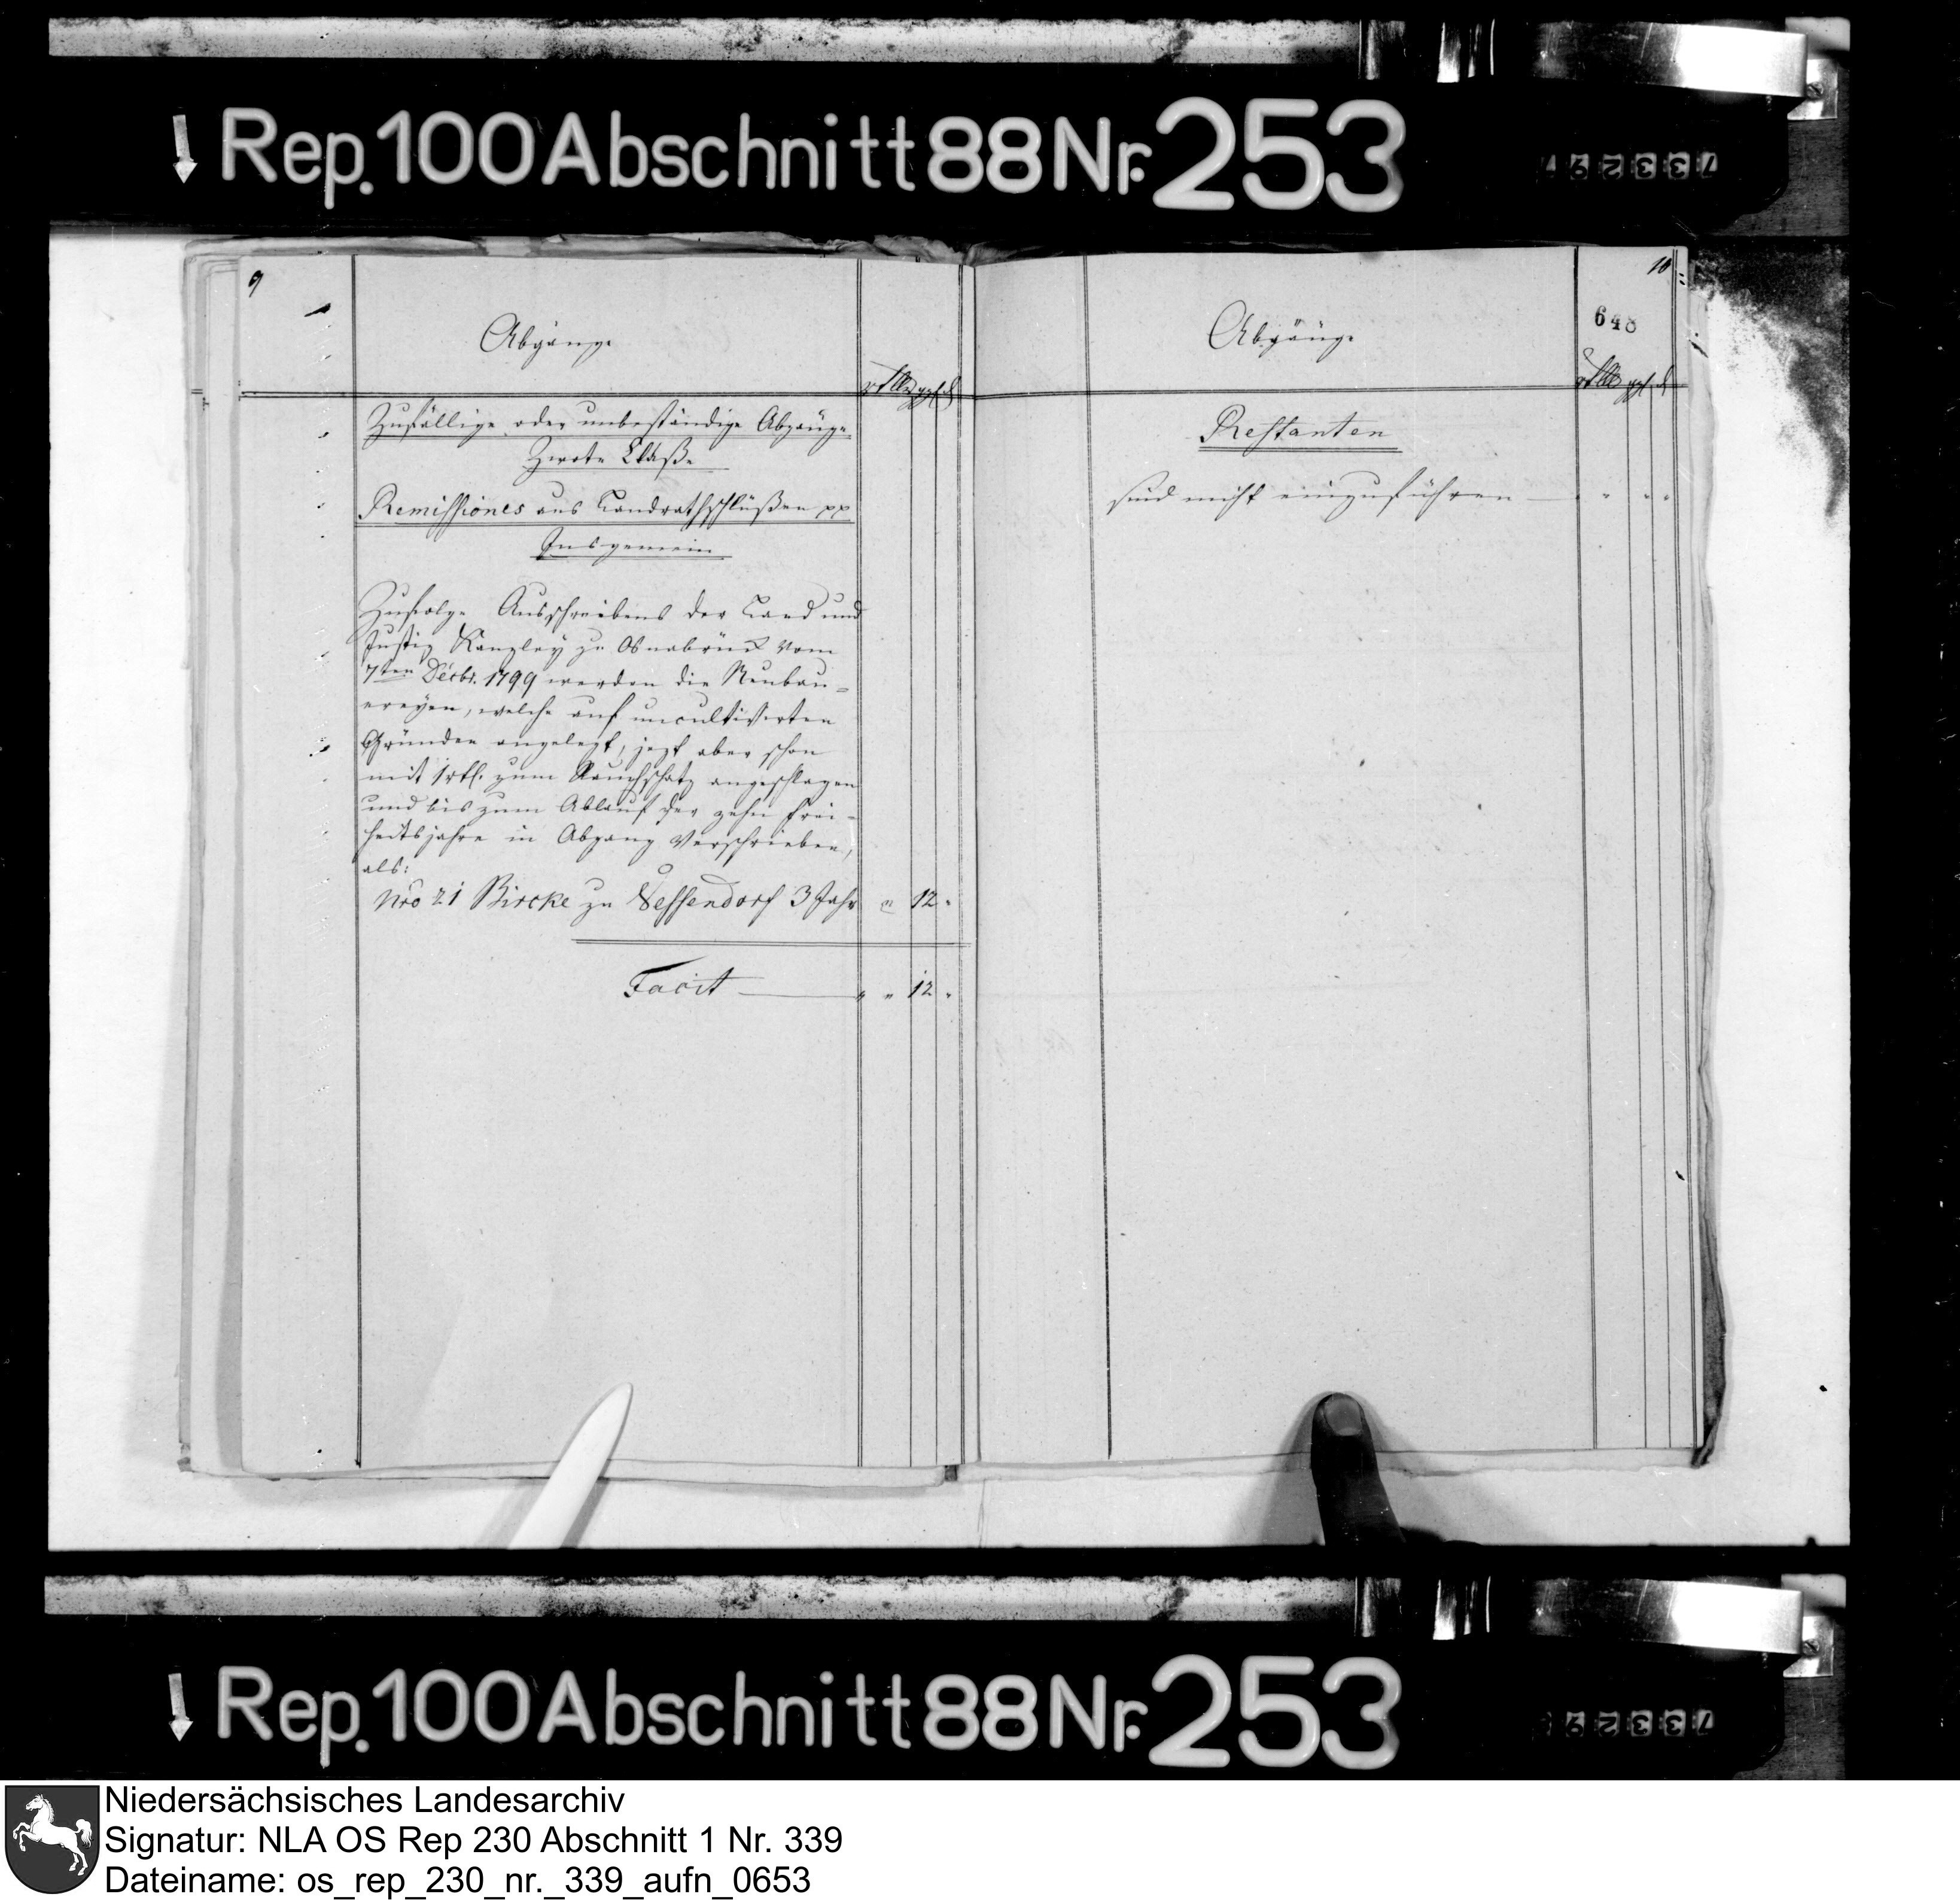 Rep. 100 Abschnitt 88 Nr. 253
733297
9
Abgänge
rthlr ggl d
Zufällige oder unbeständige Abgänge
Zwote Claße
Remissiones aus Landrathsschlüßen pp
Insgemein
Zufolge Ausschreibens der Land und
Justiz Kanzley zu Osnabrück vom
7ten Decbr. 1799 werden die Neubau=
ereyen, welche auf uncultivirten
Gründen angelegt, jezt aber schon
mit 1 rtl. zum Rauchschatz angeschlagen
und bis zum Ablauf der zehn Frei=
heitsjahre in Abgang verschrieben,
als:
Nro 21 Bircke zu Sessendorf 3 Jahr " 12 "
Facit " " 12 "
10
648
Abgänge
rthlr ggl d
Restanten
sind nicht einzuführen " " "
Rep. 100 Abschnitt 88 Nr. 253
733297
Niedersächsisches Landesarchiv
Signatur: NLA OS Rep 230 Abschnitt 1 Nr. 339
Dateiname: os_rep_230_nr._339_aufn_0653